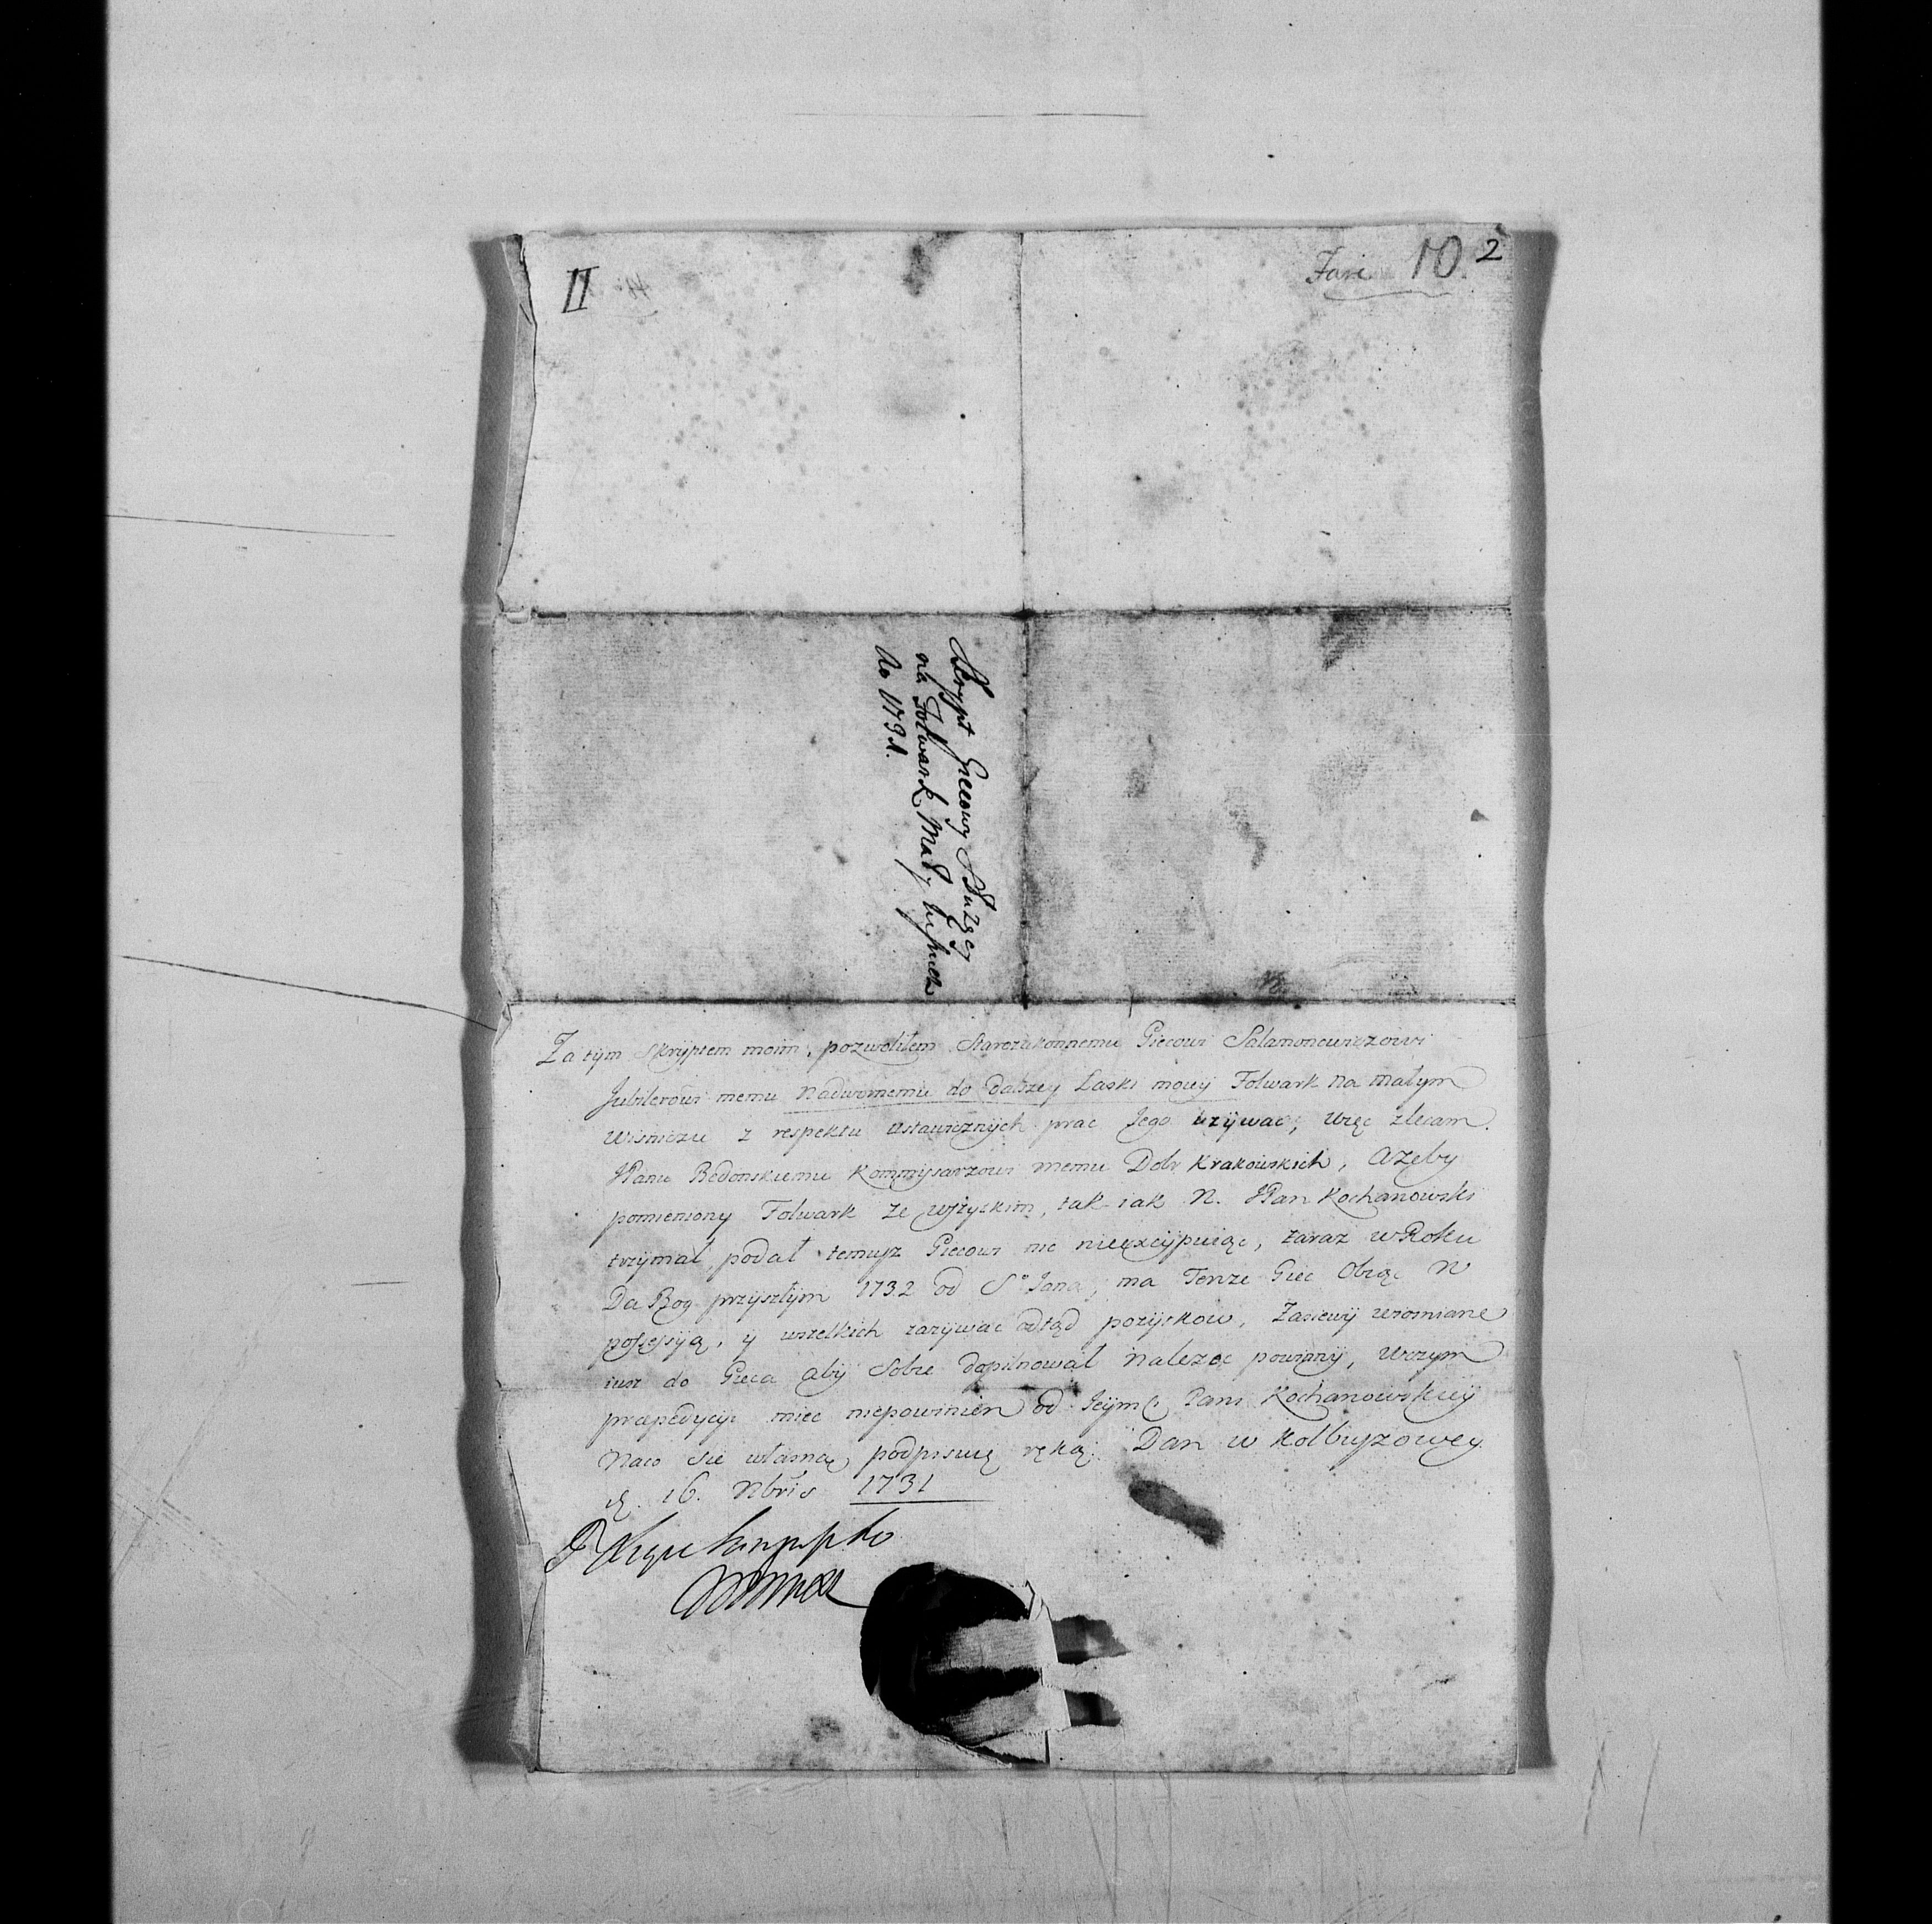 II
Fasc 10. 2
Skrypt Giecowy Służący
na Folwark Mały Wisnicz
Ao 1731.
Za tym Skryptem moim, pozwoliłem Starozakonnemu Giecowi Salamonowiczowi
Jubilerowi memu Nadwornemu do Dalszey Łaski moiey Folwark na małym
Wisniczu z respektu ustawicznych prac Jego uzywac, więc zlecam
JPanu Kommissarzowi memu Dobr Krakowskich, Azeby
pomieniony Folwark ze wszyskim, tak iak N. JPan Kochanowski
trzymał, podał temusz Giecowi nic nieexcypuiąc, zaraz w Roku
Da Bog przyszłym 1732 od So Jana, ma Tenze Giec Obiąc W
possessyią, y wszelkich zazywac odtąd pozyskow, Zasiewy
iusz do Gieca aby Sobie dopilnował nalezec powinny, w czym
praepedycyi miec niepowinien od Jeym Pani Kochanowskiey
Naco sie własną podpisuię ręką. Dan w Kolbuszowey
d. 16. Nbris 1731